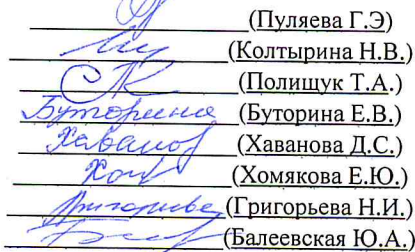 (Пуляева Г.Э)
(Колтырина Н.В.)
(Полищук Т.А.)
Буторина (Буторина Е.В.)
Хаванов (Хаванова Д.С.)
Хом (Хомякова Е.Ю.)
Григорьева (Григорьева Н.И.)
(Балеевская Ю.А.)